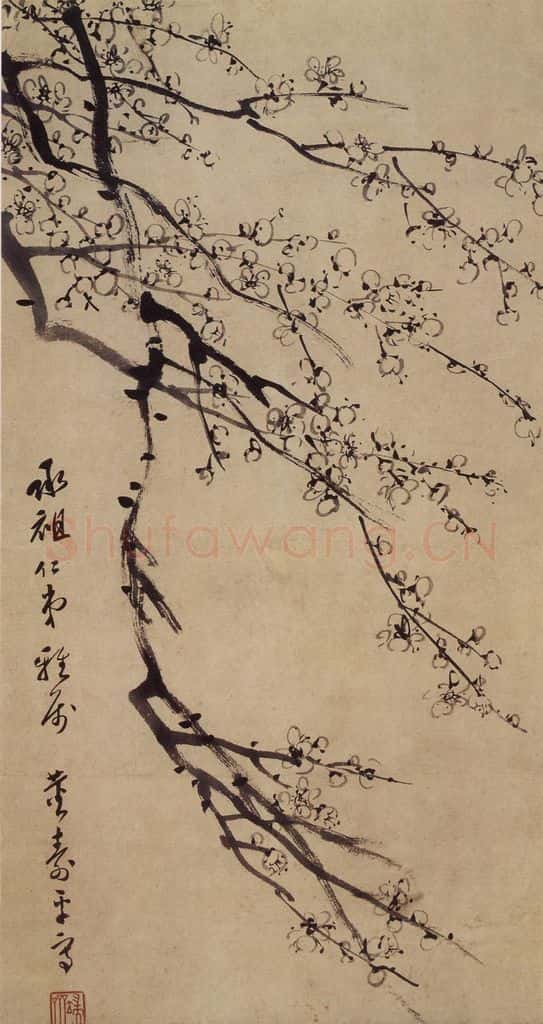 承祖仁弟雅属 董寿平写
Shufawang.CN